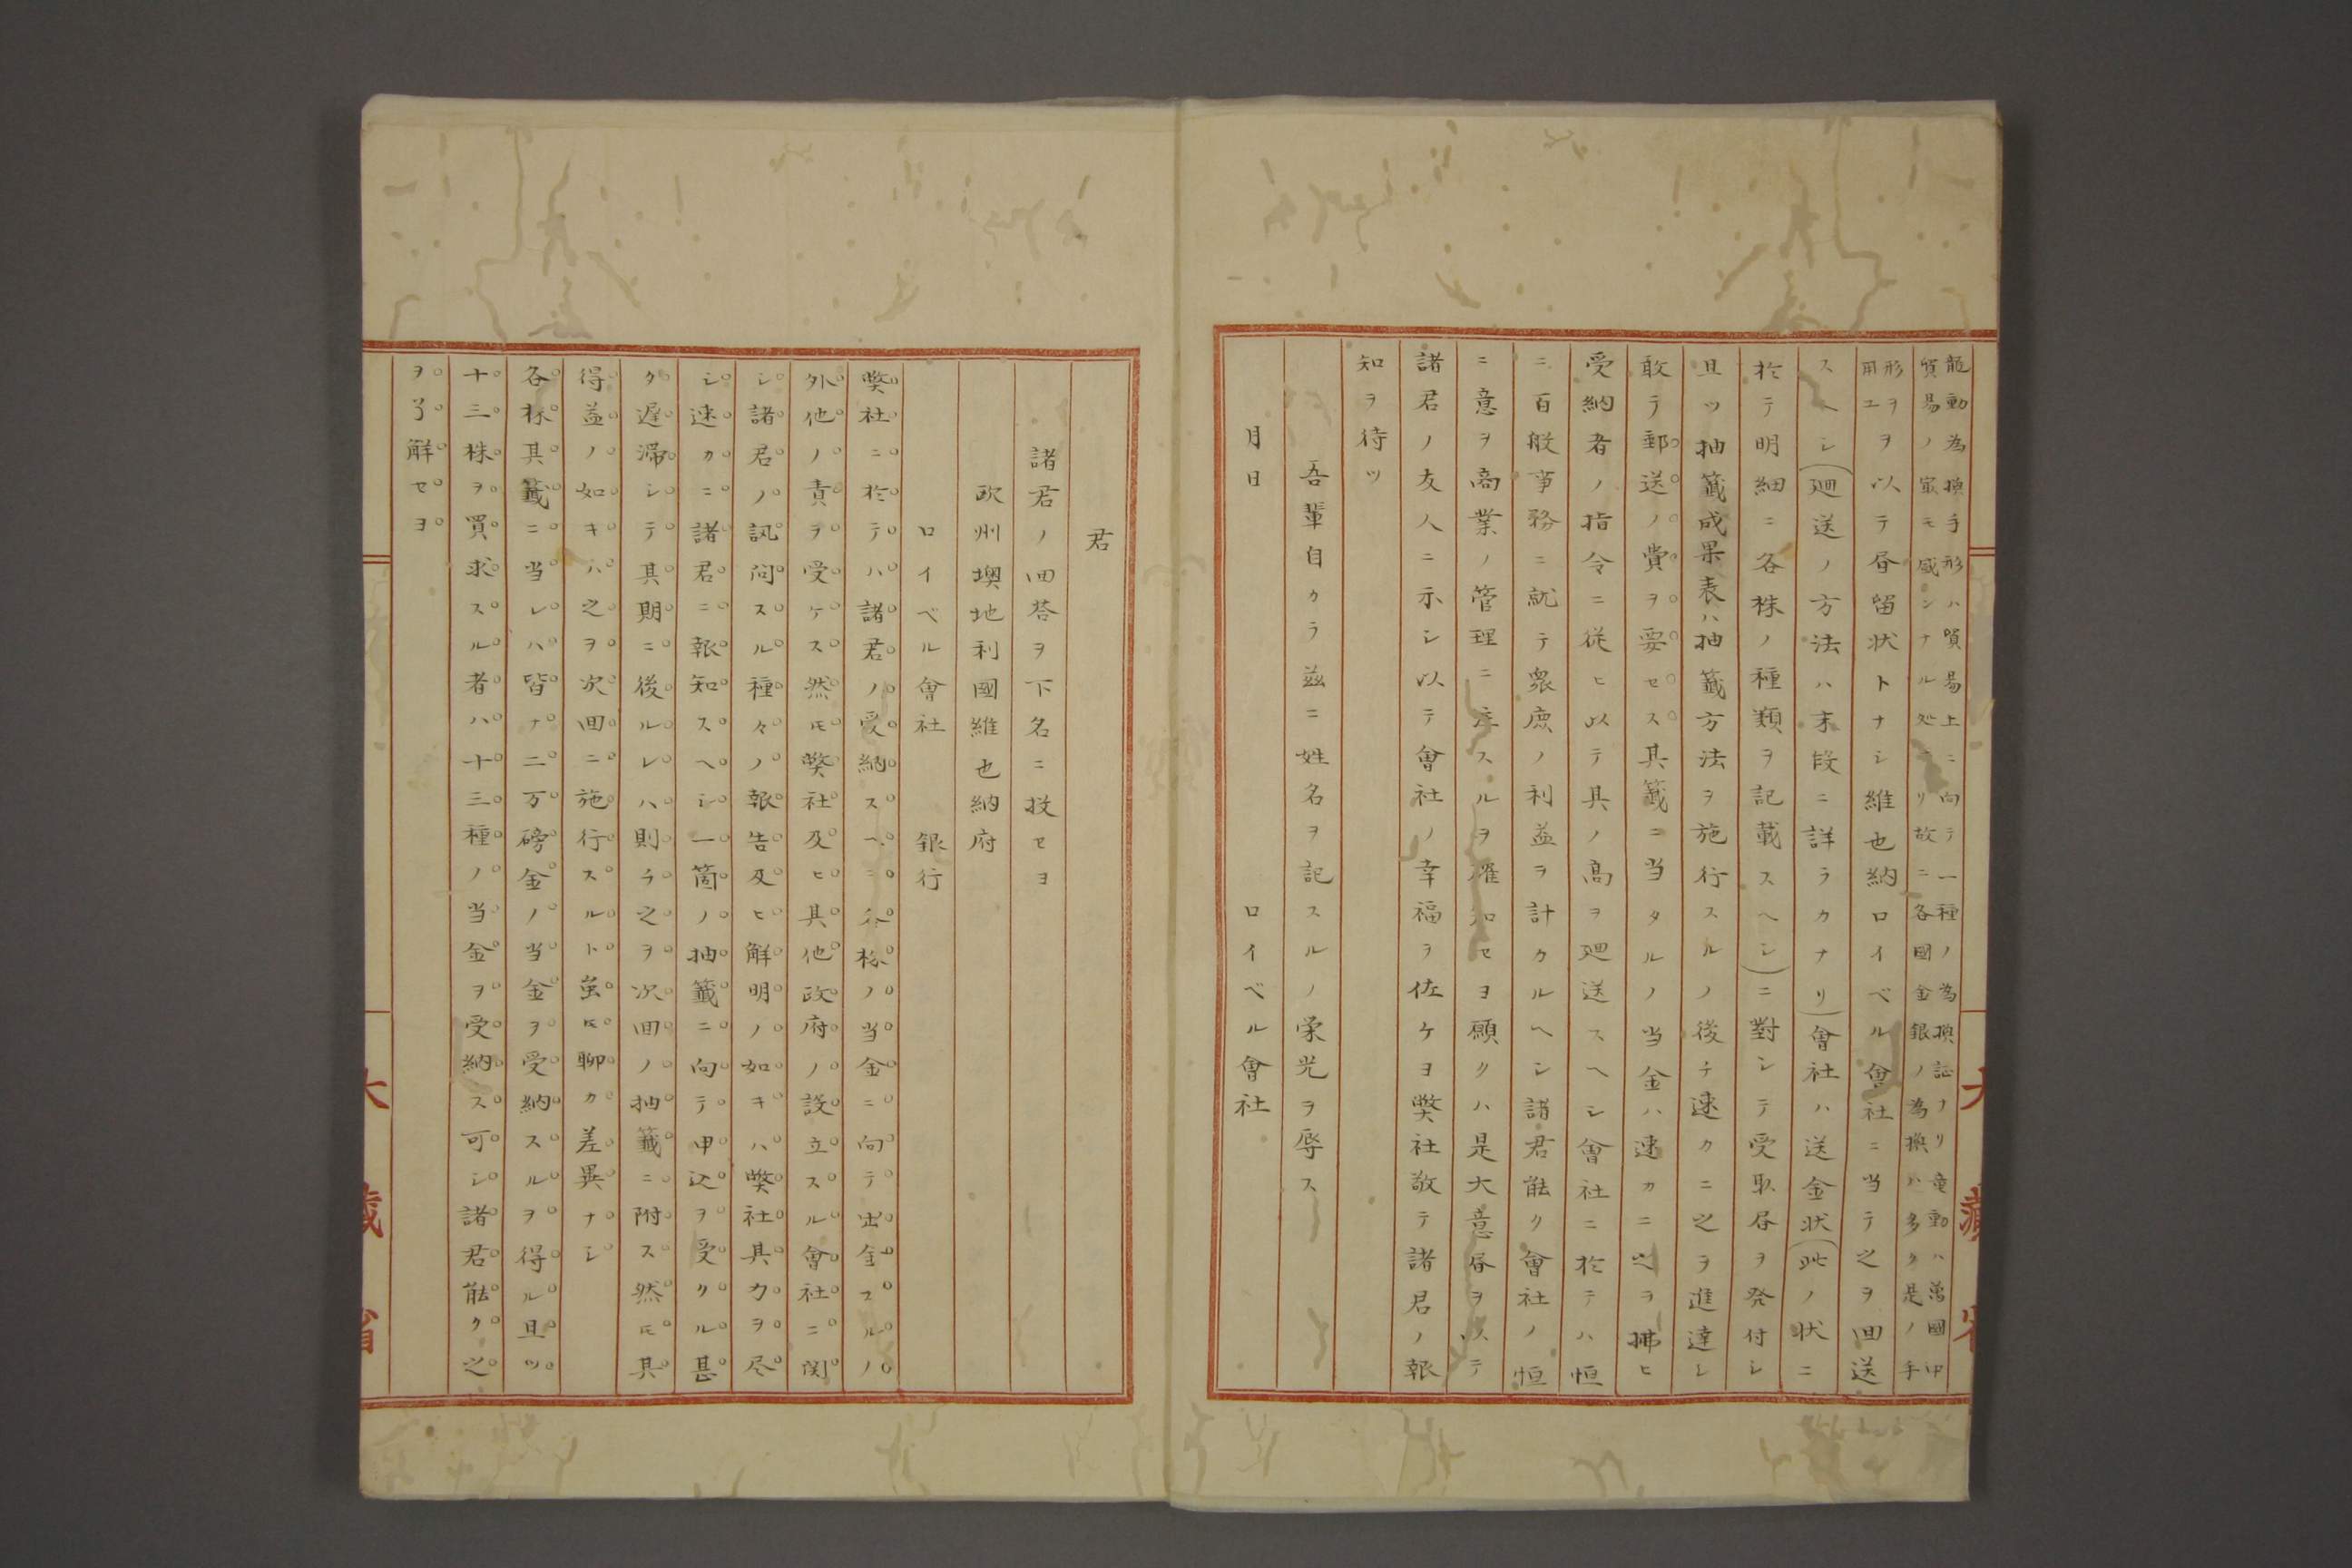 龍動為換手形ハ貿易上ニ向テ一種ノ為換証ノリ竜動ハ萬國中
貿易ノ冣モ盛ンナル処ニリ故ニ各國金銀ノ為換ハ多ク是ノ手
形ヲ
用エヲ以テ㫪留状トナシ維也納ロイベル會社ニ当テ之ヲ回送
スヘシ(廻送ノ方法ハ末段ニ詳ラカナリ)會社ハ送金状(此ノ状ニ
於テ明細ニ各株ノ種類ヲ記載スヘシ)ニ對シテ受取㫪ヲ発付シ
且ツ抽籤成果表ハ抽籤方法ヲ施行スルノ後チ速カニ之ヲ進達シ
敢テ郵送ノ費ヲ要セス其籤ニ当タルノ当金ハ速カニ之ヲ拂ヒ
受納者ノ指令ニ従ヒ以テ其ノ高ヲ廻送スヘシ會社ニ於テハ恒
ニ百般事務ニ就テ衆庶ノ利益ヲ計カルヘシ諸君能ク會社ノ恒
ニ意ヲ商業ノ管理ニ注スルヲ確知セヨ願クハ是大意㫪ヲ以テ
諸君ノ友人ニ示シ以テ會社ノ幸福ヲ佐ケヨ弊社敬テ諸君ノ報
知ヲ待ツ
吾輩自カラ茲ニ姓名ヲ記スルノ栄光ヲ辱ス
月日 ロイベル會社
君
諸君ノ回荅ヲ下名ニ投セヨ
欧州墺地利國維也納府
ロイベル會社 銀行
弊社ニ於テハ諸君ノ受納スヘキ各株ノ当金ニ向テ出金スルノ
外他ノ責ヲ受ケス然㪽弊社及ヒ其他政府ノ設立スル會社ニ関
シ諸君ノ訊问スル種々ノ報告及ヒ解明ノ如キハ弊社其力ヲ尽
シ速カニ諸君ニ報知スヘシ一箇ノ抽籤ニ向テ申込ヲ受クル甚
ク遅滞シテ其期ニ後ルレハ則チ之ヲ次回ノ抽籤ニ附ス然𪜈其
得益ノ如キハ之ヲ次回ニ施行スルト虽𪜈聊カ差異ナシ
各株其籤ニ当レハ皆ナ二万磅金ノ当金ヲ受納スルヲ得ル且ツ
十三株ヲ買求スル者ハ十三種ノ当金ヲ受納ス可シ諸君能ク之
ヲ了解セヨ
大藏省